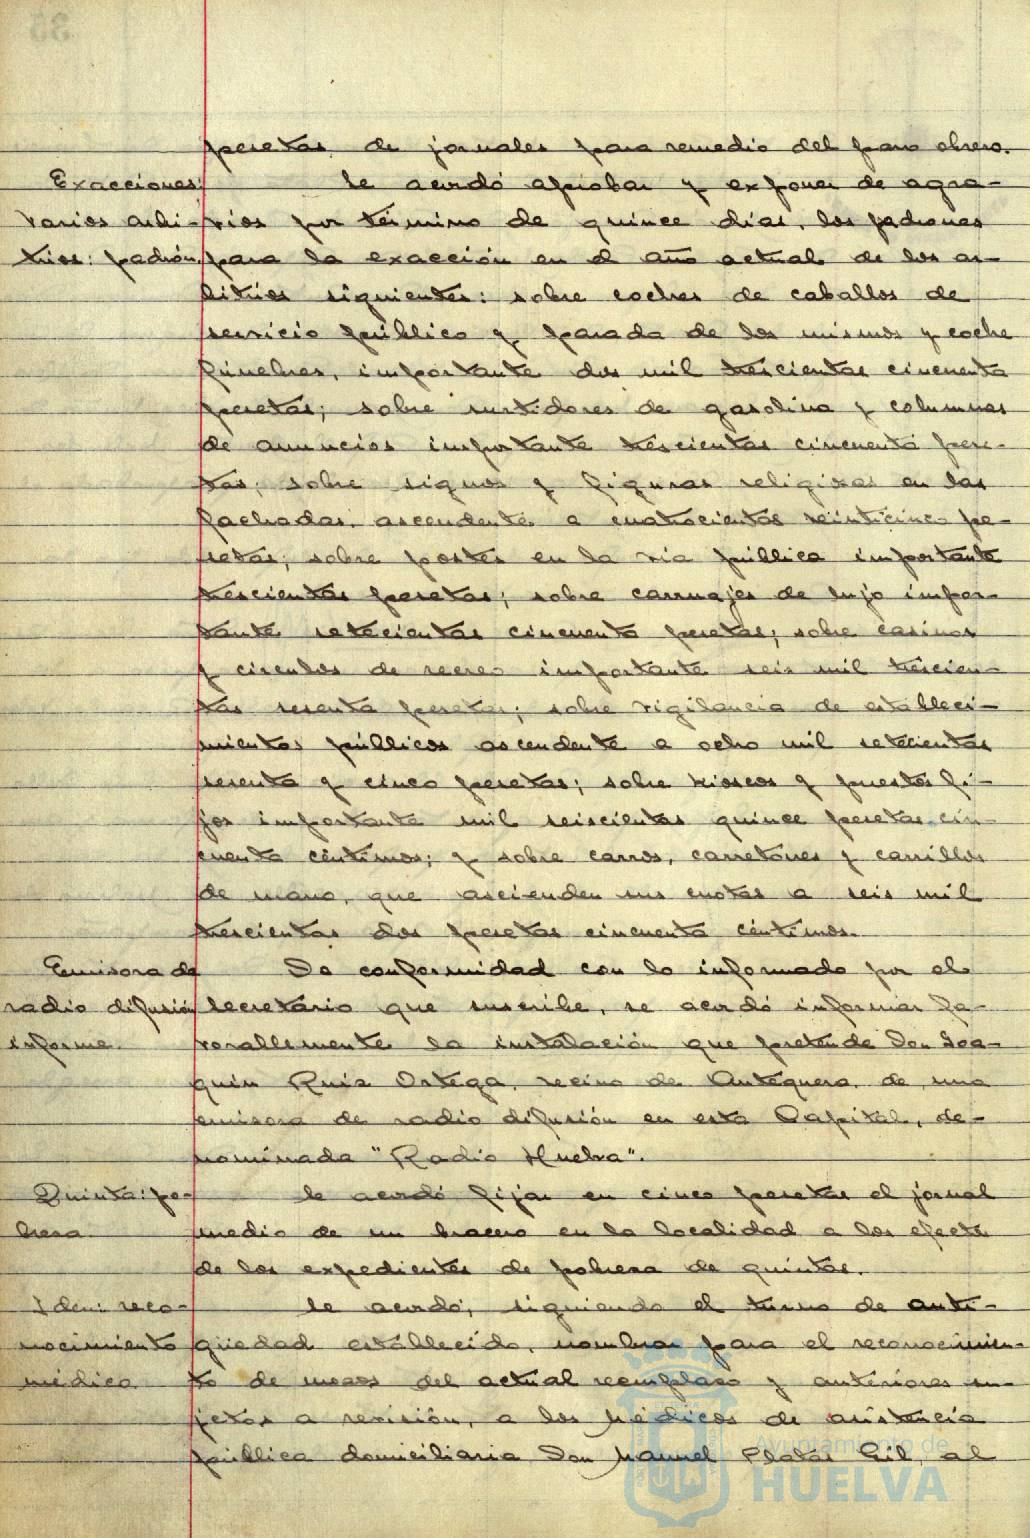 pesetas de jornales para remedio del paro obrero.
Exacciones: Se acordó aprobar y exponer de agra-
varios arbi- vios por término de quince días, los padrones
trios: padrón. para la exacción en el año actual de los ar-
bitrios siguientes: sobre coches de caballos de
servicio público y parada de los mismos y coche
fúnebres, importante dos mil trescientas cincuenta
pesetas; sobre surtidores de gasolina y columnas
de anuncios importante trescientas cincuenta pese-
tas; sobre signos y figuras religiosas en las
fachadas, ascendente a cuatrocientas veinticinco pe-
setas; sobre postes en la vía pública importante
trescientas pesetas; sobre carruajes de lujo impor-
tante setecientas cincuenta pesetas; sobre casinos
y círculos de recreo importante seis mil trescien-
tas sesenta pesetas; sobre vigilancia de estableci-
mientos públicos ascendente a ocho mil setecientas
sesenta y cinco pesetas; sobre kioscos y puestos fi-
jos importante mil seiscientas quince pesetas cin-
cuenta céntimos; y sobre carros, carretones y carrillos
de mano, que ascienden sus cuotas a seis mil
trescientas dos pesetas cincuenta céntimos.
Emisora de De conformidad con lo informado por el
radio difusión secretario que suscribe, se acordó informar fa-
informe. vorablemente la instalación que pretende Don Joa-
quín Ruiz Ortega, vecino de Antequera, de una
emisora de radio difusión en esta Capital, de-
nominada "Radio Huelva".
Quinta: po- Se acordó fijar en cinco pesetas el jornal
breza medio de un bracero en la localidad a los efectos
de los expedientes de pobreza de quintas.
Idem: reco- Se acordó, siguiendo el turno de anti-
nocimiento güedad establecido, nombrar para el reconocimien-
médico to de mozos del actual reemplazo y anteriores su-
jetos a revisión, a los Médicos de asistencia
pública domiciliaria Don Manuel Platas Gil, al
Ayuntamiento de
HUELVA